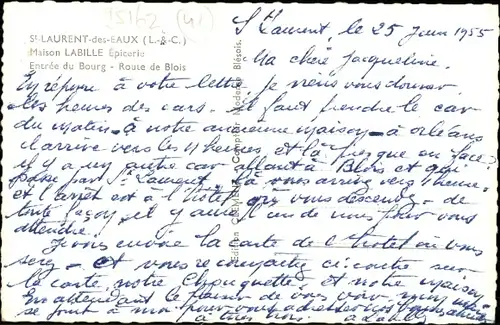 15162 (41)
St-LAURENT-des-EAUX (L.-&-C.)
Maison LABILLE Epicerie
Entrée du Bourg - Route de Blois
St Laurent, le 25 Juin 1955
Ma chère Jacqueline.
En réponse à votre lettre je viens vous donner
les heures des cars. il faut prendre le car
du matin à notre ancienne maison - à orléans
il arrive vers les 11 heures, et là presque en face
il y a un autre car allant à Blois et qui
passe par St Laurent, là vous arrivez vers 1 heure
et l'arrêt est à l'hôtel que vous descendez - de
toute façon, il y aura l'un de nous pour vous
attendre.
Je vous envoie la carte de l'hotel où vous
serez - et vous reconnaîtrez ci-contre sur
la carte, notre Chouquette et notre maison
En attendant le plaisir de vous voir,
se joint à moi pour vous
à tous